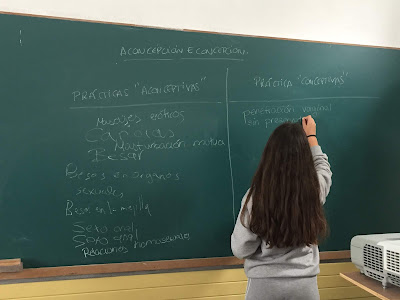 ACONCEPCIÓN E CONCEPCIÓN
PRÁCTICAS "ACONCEPTIVAS"
Masajes eróticos
Caricias
Masturbación mutua
Besar
Besos en órganos
sexuales
Besos en la mejilla
Sexo oral
Sexo anal
Relaciones homosexuales
PRÁCTICA "CONCEPTIVAS"
penetración vaginal
sin